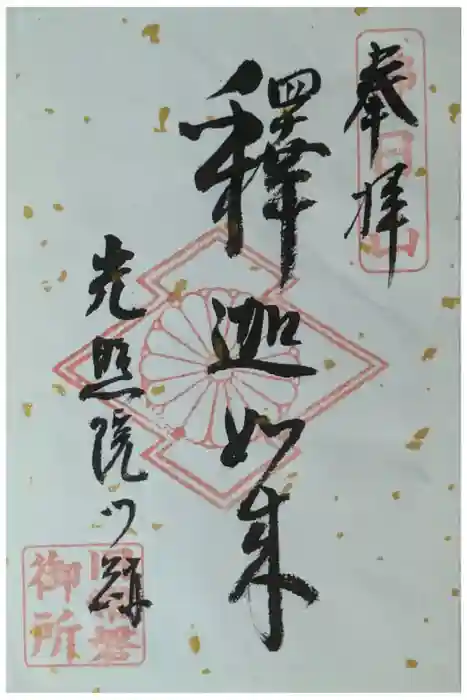 奉拝
釋迦如来
光照院門跡
御所